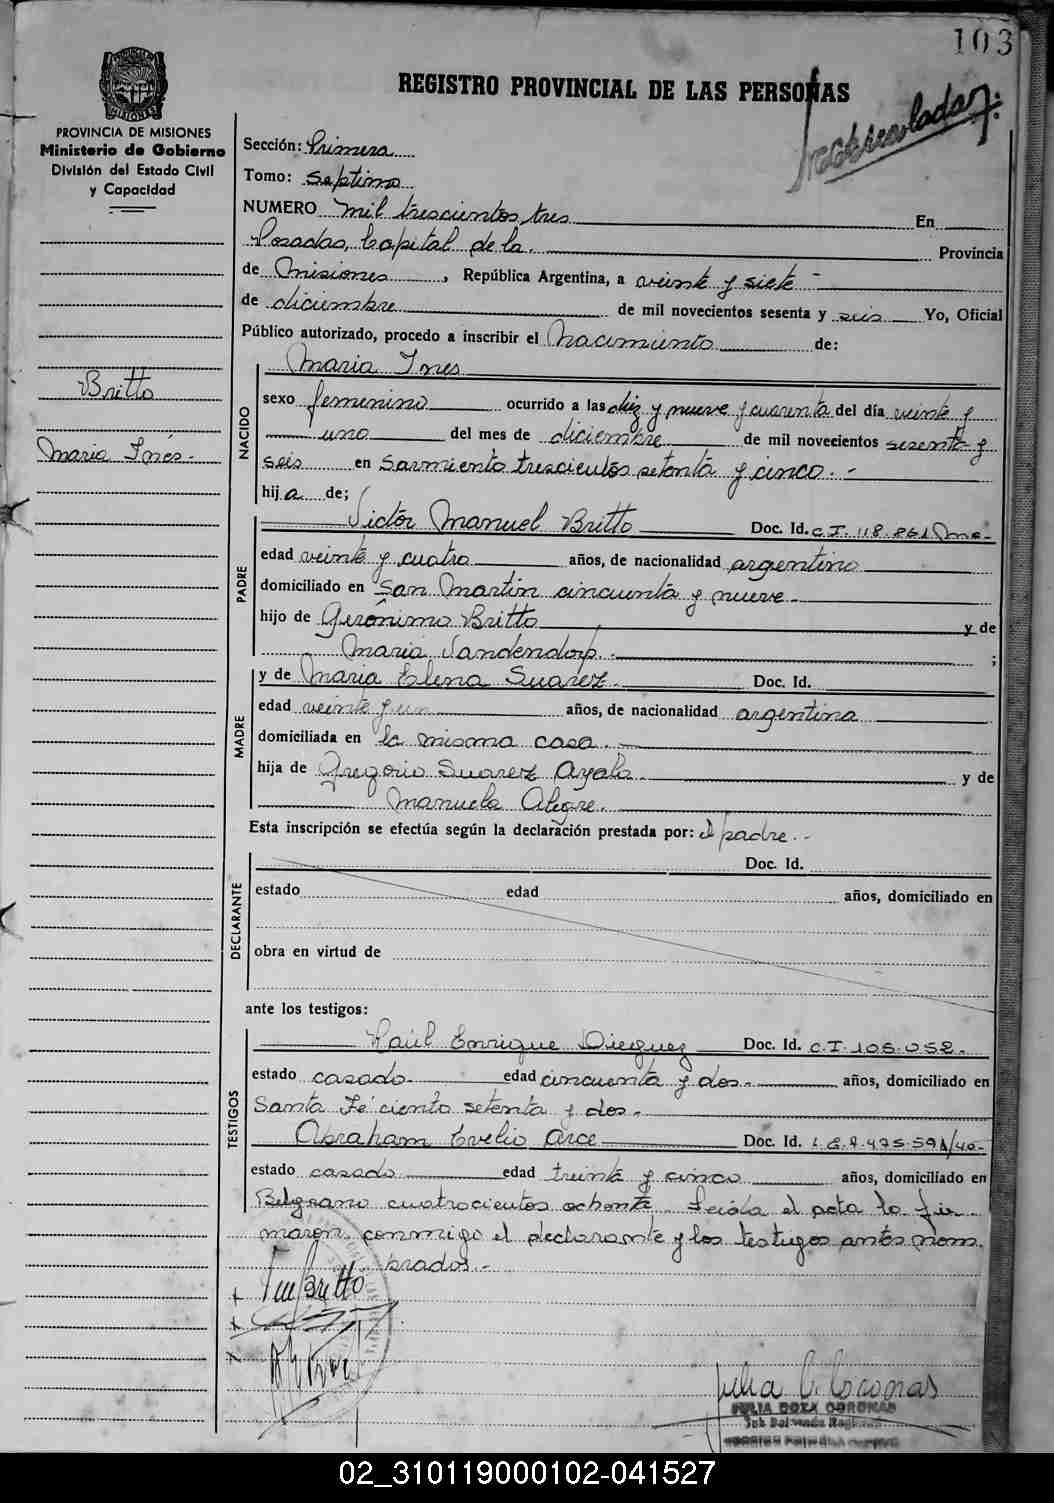 103
REGISTRO PROVINCIAL DE LAS PERSONAS
Matriculada
PROVINCIA DE MISIONES
Ministerio de Gobierno
División del Estado Civil
y Capacidad
Britto
Maria Inés.-
Sección: Primera
Tomo: septimo
NUMERO mil trescientos tres En
Posadas, Capital de la Provincia
de Misiones, República Argentina, a veinte y siete -
de diciembre de mil novecientos sesenta y seis Yo, Oficial
Público autorizado, procedo a inscribir el Nacimiento de:
Maria Ines
NACIDO
sexo femenino ocurrido a las diez y nueve y cuarenta del día veinte y
uno del mes de diciembre de mil novecientos sesenta y
seis en Sarmiento trescientos setenta y cinco.-
hija de;
PADRE
Victor Manuel Britto Doc. Id. C.I. 118.861 Mnes-
edad veinte y cuatro años, de nacionalidad argentino
domiciliado en San Martin cincuenta y nueve-
hijo de Gerónimo Britto y de
Maria Vandendorp. ;
MADRE
y de Maria Elena Suarez. Doc. Id.
edad veinte y un años, de nacionalidad argentina
domiciliada en la misma casa.
hija de Gregorio Suarez Ayala y de
Manuela Alegre.
Esta inscripción se efectúa según la declaración prestada por: el padre.-
DECLARANTE
Doc. Id.
estado edad años, domiciliado en
obra en virtud de
ante los testigos:
TESTIGOS
Raúl Enrique Dieguez Doc. Id. C.I. 105.052.-
estado casado. edad cincuenta y dos.- años, domiciliado en
Santa Fé ciento setenta y dos.-
Abraham Evelio Arce Doc. Id.
estado casado edad treinta y cinco años, domiciliado en
Belgrano cuatrocientos ochenta. Leida el acta la fir-
maron conmigo el declarante y los testigos antes nom-
brados.-
Britto
Julia C. Coronas
CORONAS
02_310119000102-041527